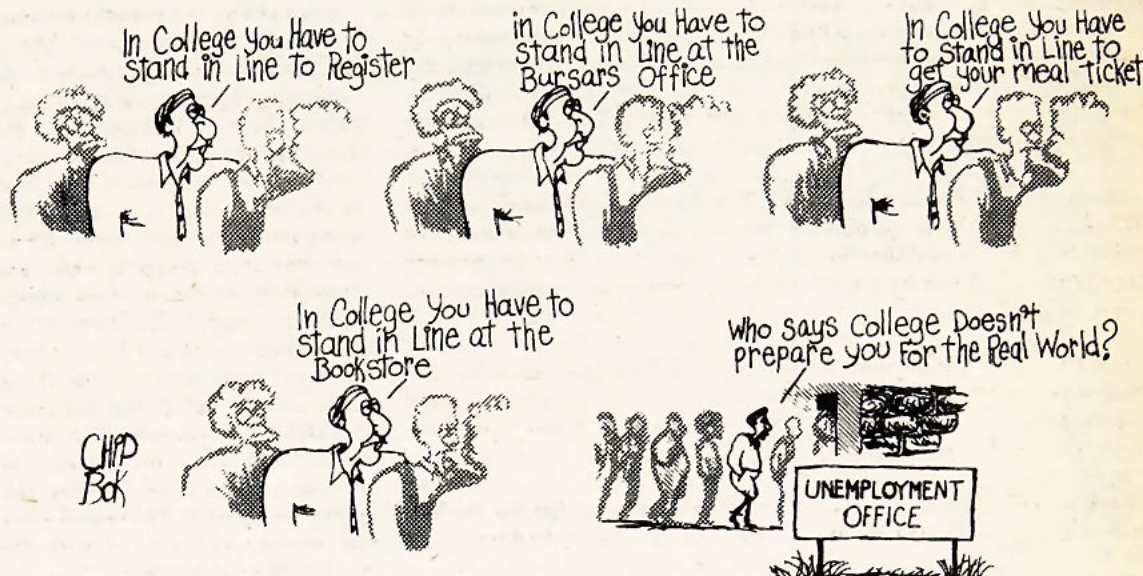 In College You Have to
Stand in Line to Register
in College You Have to
stand in Line at the
Bursars Office
In College You Have
to Stand in Line to
get your meal Ticket
In College You Have to
Stand in Line at the
Bookstore
Who says College Doesn't
prepare you for the Real World?
CHIP
BOK
UNEMPLOYMENT
OFFICE